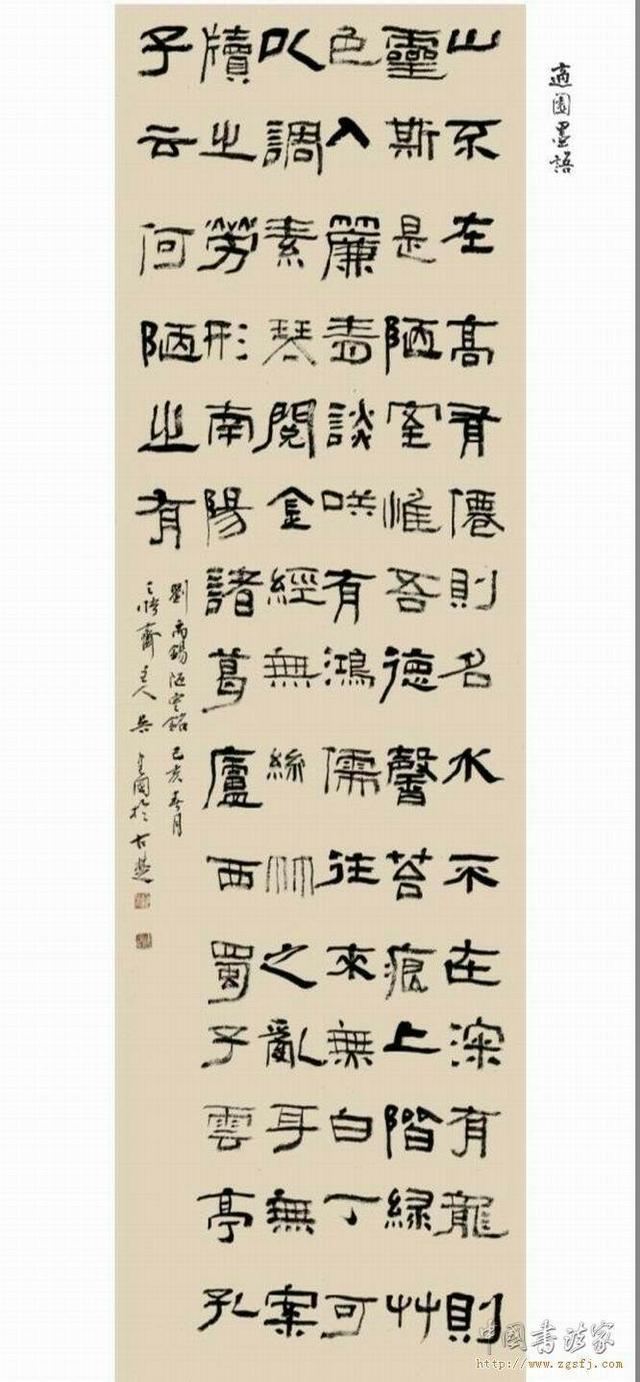 適園墨語
山不在高有僊則名水不在深有龍則
靈斯是陋室惟吾德馨苔痕上階綠艸
色入簾青談咲有鴻儒往來無白丁可
以調素琴閱金經無絲竹之亂耳無案
牘之勞形南陽諸葛廬西蜀子雲亭孔
子云何陋之有
劉禹錫陋室銘己亥春月
齋主人吳國於古楚
中國書法家
http://www.zgsfj.com